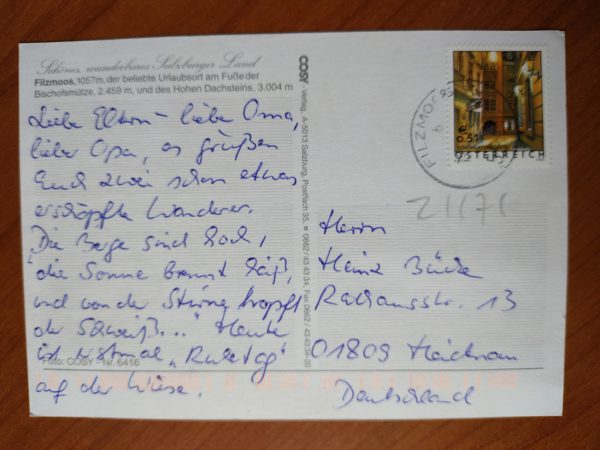 Schönes, wunderbares Salzburger Land
Filzmoos, 1057m, der beliebte Urlaubsort am Fuße der
Bischofsmütze, 2.459 m, und des Hohen Dachsteins, 3.004 m
Liebe Eltern – liebe Oma,
lieber Opa, es grüßen
Euch zwei schon etwas
erschöpfte Wanderer.
"Die Berge sind hoch,
die Sonne brennt heiß,
und von der Stirne tropft
der Schweiß..." Heute
ist erstmal „Ruhetag"
auf der Wiese.
Foto: COSY - Nr. 6416
COSY - Verlag, A-5013 Salzburg, Postfach 35, ☎ 0662/43 43 34, Fax 0662 / 43 43 34-20
FILZMOOS
€ 0.51
ÖSTERREICH
21171
Herrn
Heinz
Rathausstr. 13
01809 Heidenau
Deutschland